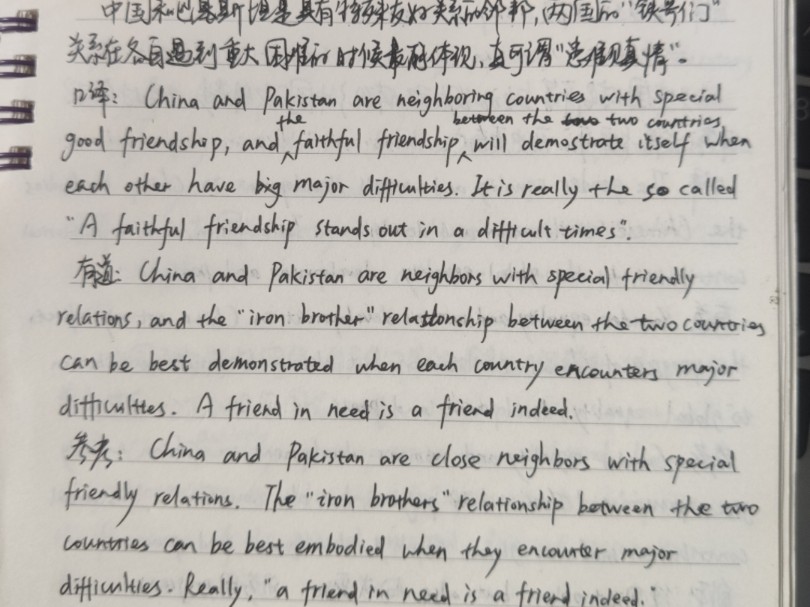 中国和巴基斯坦是具有特殊友好关系的邻邦,两国的"铁哥们"
关系在各自遇到重大困难的时候最能体现,真可谓"患难见真情"。
口译: China and Pakistan are neighboring countries with special
the between the two two countries
good friendship, and faithful friendship will demostrate itself when
each other have big major difficulties. It is really the so called
"A faithful friendship stands out in a difficult times".
有道: China and Pakistan are neighbors with special friendly
relations, and the "iron brother" relationship between the two countries
can be best demonstrated when each country encounters major
difficulties. A friend in need is a friend indeed.
参考: China and Pakistan are close neighbors with special
friendly relations. The "iron brothers" relationship between the two
countries can be best embodied when they encounter major
difficulties. Really, "a friend in need is a friend indeed."